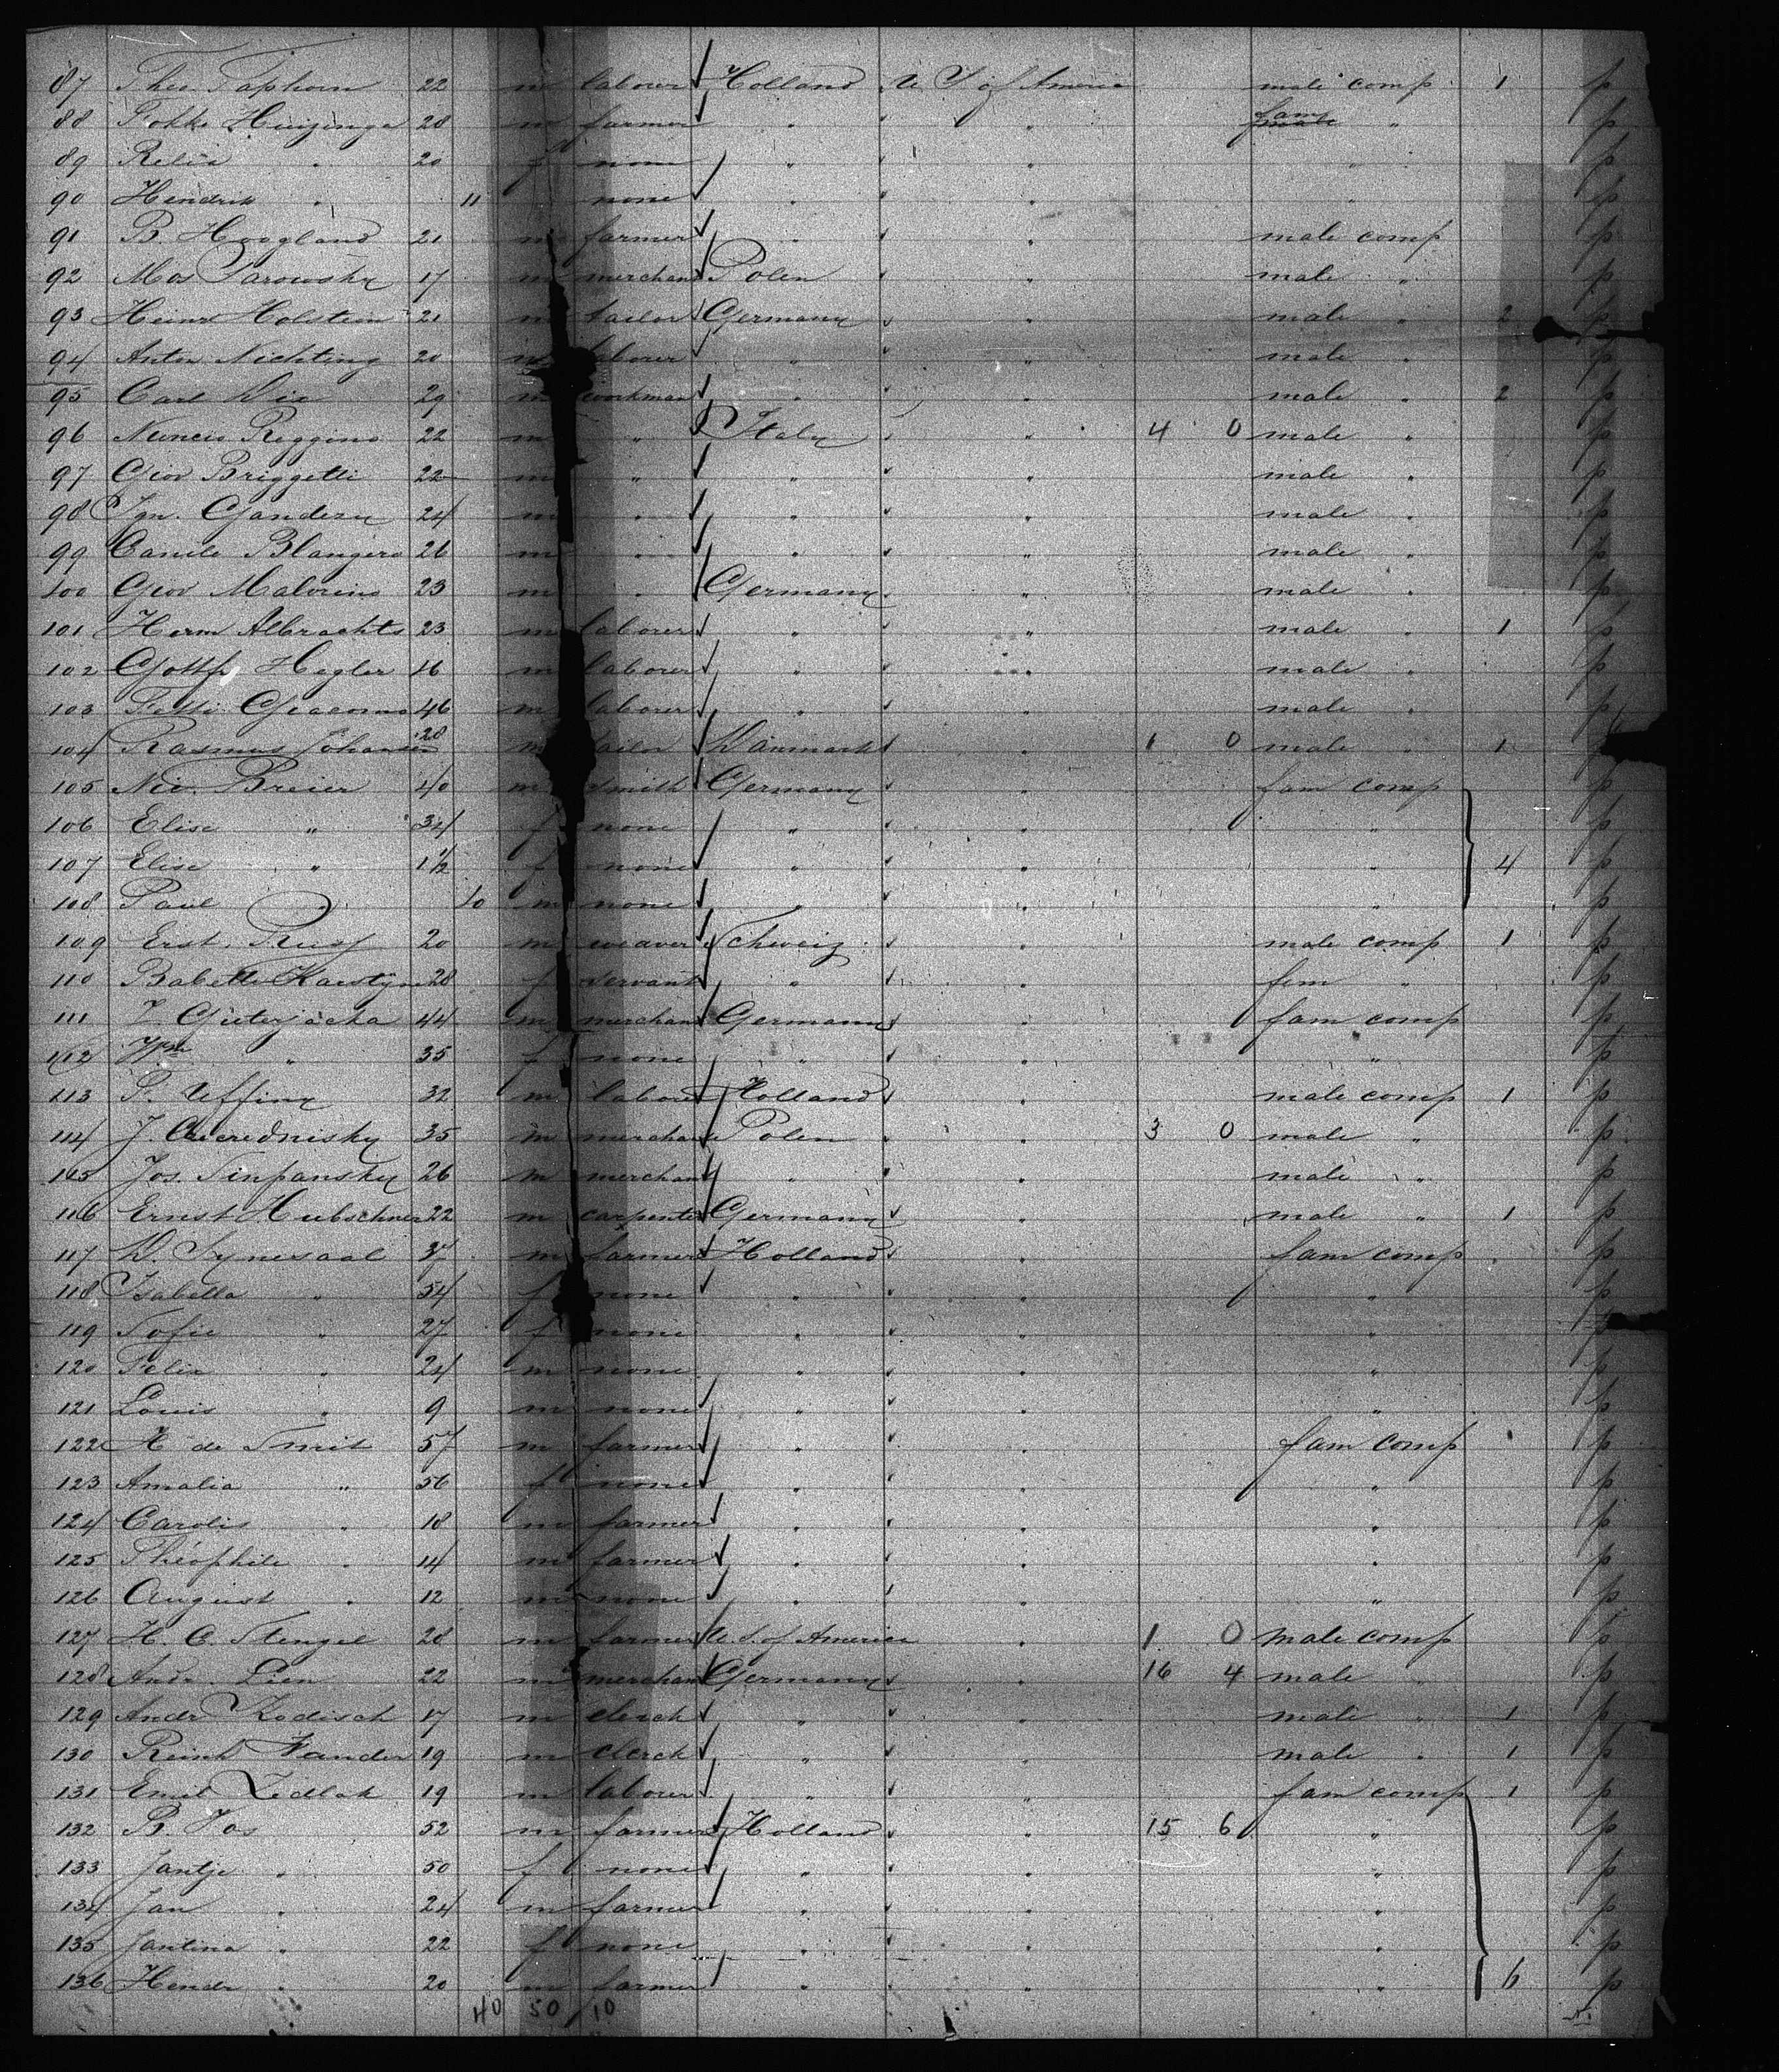 87 Theo Taphorn 22 m laborer Holland U S of America male comp 1 p
88 Fokke Huizinga 28 m farmer " " fam " p
89 Relia " 20 f none " " " p
90 Hendrik " 11 none " " " p
91 B. Hoogland 21 m farmer " " male comp p
92 Mos Sarowsky 17 m merchant Polen " male " p
93 Heinr Holstein 21 m tailor Germany " male " 2 p
94 Anton Nichting 20 m laborer " " male " p
95 Carl Dix 29 m workman " " male " 2 p
96 Nuncio Reggino 22 m " Italy " 4 0 male " p
97 Giov Briggetti 22 m " " " male " p
98 Ign. Gandery 24 m " " " male " p
99 Camilo Blangero 26 m " " " male " p
100 Giov Malvrino 23 m " Germany " male " p
101 Herm Albrachts 23 m laborer " " male " 1 p
102 Gottfr Hegler 16 m laborer " " male " p
103 Giacomo 46 m laborer " " male " p
104 Rasmus Johansen 28 m tailor Danmark " 1 0 male " 1 p
105 Nic. Breier 40 m smith Germany " fam comp p
106 Elise " 34 f none " " " p
107 Elise " 1 1/2 f none " " " 4 p
108 Paul " 10 m none " " " p
109 Erst. Russ 20 m weaver Schweiz " male comp 1 p
110 Babette 28 f servant " " fem " p
111 44 m merchant Germany " fam comp p
112 " 35 f none " " " p
113 P. Uffing 32 m labore Holland " male comp 1 p
114 J. 35 m merchant Polen " 3 0 male " p
115 Jos. Sinpansky 26 m merchant " " male " p
116 Ernst Hubschner 22 m carpenter Germany " male " 1 p
117 D. Synesaal 37 m farmer Holland " fam comp p
118 Isabella " 54 f none " " " p
119 Sofie " 27 f none " " " p
120 Felix " 24 m none " " " p
121 Louis " 9 m none " " " p
122 H de Smit 57 m farmer " " fam comp p
123 Amalia " 56 f none " " " p
124 Carolis " 18 m farmer " " " p
125 Théophile " 14 m farmer " " " p
126 August " 12 m none " " " p
127 H. C. Stengel 28 m farmer U S. of America " 1 0 male comp p
128 Andr. Lien 22 m merchant Germany " 16 4 male " p
129 Andr Kodisch 17 m clerck " " male " 1 p
130 Reinh Fander 19 m clerck " " male " 1 p
131 Emil Zedlak 19 m laborer " " fam comp 1 p
132 B. Vos 52 m farmer Holland " 15 6 " p
133 Jantje " 50 f none " " " p
134 Jan " 24 m farmer " " " p
135 Jantina " 22 f none " " " p
136 Hendr " 20 m farmer " " " 6 p
40 50 10